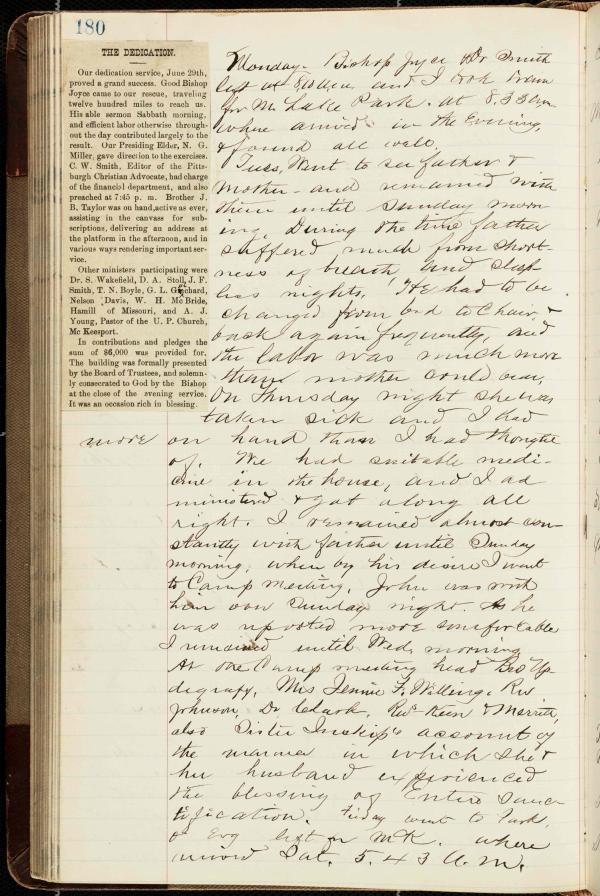 180
THE DEDICATION.
Our dedication service, June 29th,
proved a grand success. Good Bishop
Joyce came to our rescue, traveling
twelve hundred miles to reach us.
His able sermon Sabbath morning,
and efficient labor otherwise through-
out the day contributed largely to the
result. Our Presiding Elder, N. G.
Miller, gave direction to the exercises.
C. W. Smith, Editor of the Pitts-
burgh Christian Advocate, had charge
of the financial department, and also
preached at 7:45 p. m. Brother J.
B. Taylor was on hand, active as ever,
assisting in the canvass for sub-
scriptions, delivering an address at
the platform in the afternoon, and in
various ways rendering important ser-
vice.
Other ministers participating were
Dr. S. Wakefield, D. A. Stoll, J. F.
Smith, T. N. Boyle, G. L.
Nelson Davis, W. H. McBride,
Hamill of Missouri, and A. J.
Young, Pastor of the U. P. Church,
Mc Keesport.
In contributions and pledges the
sum of $6,000 was provided for.
The building was formally presented
by the Board of Trustees, and solemn-
ly consecrated to God by the Bishop
at the close of the evening service.
It was an occasion rich in blessing.
Monday. Bishop Joyce & Dr Smith
left at and I took train
for Mt Lake Park. at 8.33 am
where arrived in the Evening,
& found all well.
Tues, Went to see father &
mother - and remained with
them until Sunday morn-
ing. During the time father
suffered much from short-
ness of breath and sleep-
less nights. He had to be
changed from bed to chair, &
back again frequently, and
the labor was much more
than mother could bear.
On Thursday night she was
taken sick and I had
more on hand than I had thought
of. We had suitable medi-
cine in the house, and I ad
ministered & got along all
right. I remained almost con-
stantly with father until Sunday
morning, when by his desire I went
to Camp Meeting. John was with
him on Sunday night. As he
was reported more comfortable
I remained until Wed. morning
At the Camp meeting head Bro Up
degraff, Mrs Jennie F. Willing, Rev
Johnson, Dr Clark, Revs Keen & Merritt,
also Sister Inskip's account of
the manner in which she &
her husband experienced
the blessing of Entire Sanc-
tification. Friday went to Park,
& Evg left for McK. where
arrived Sat. 5.43 A.M.